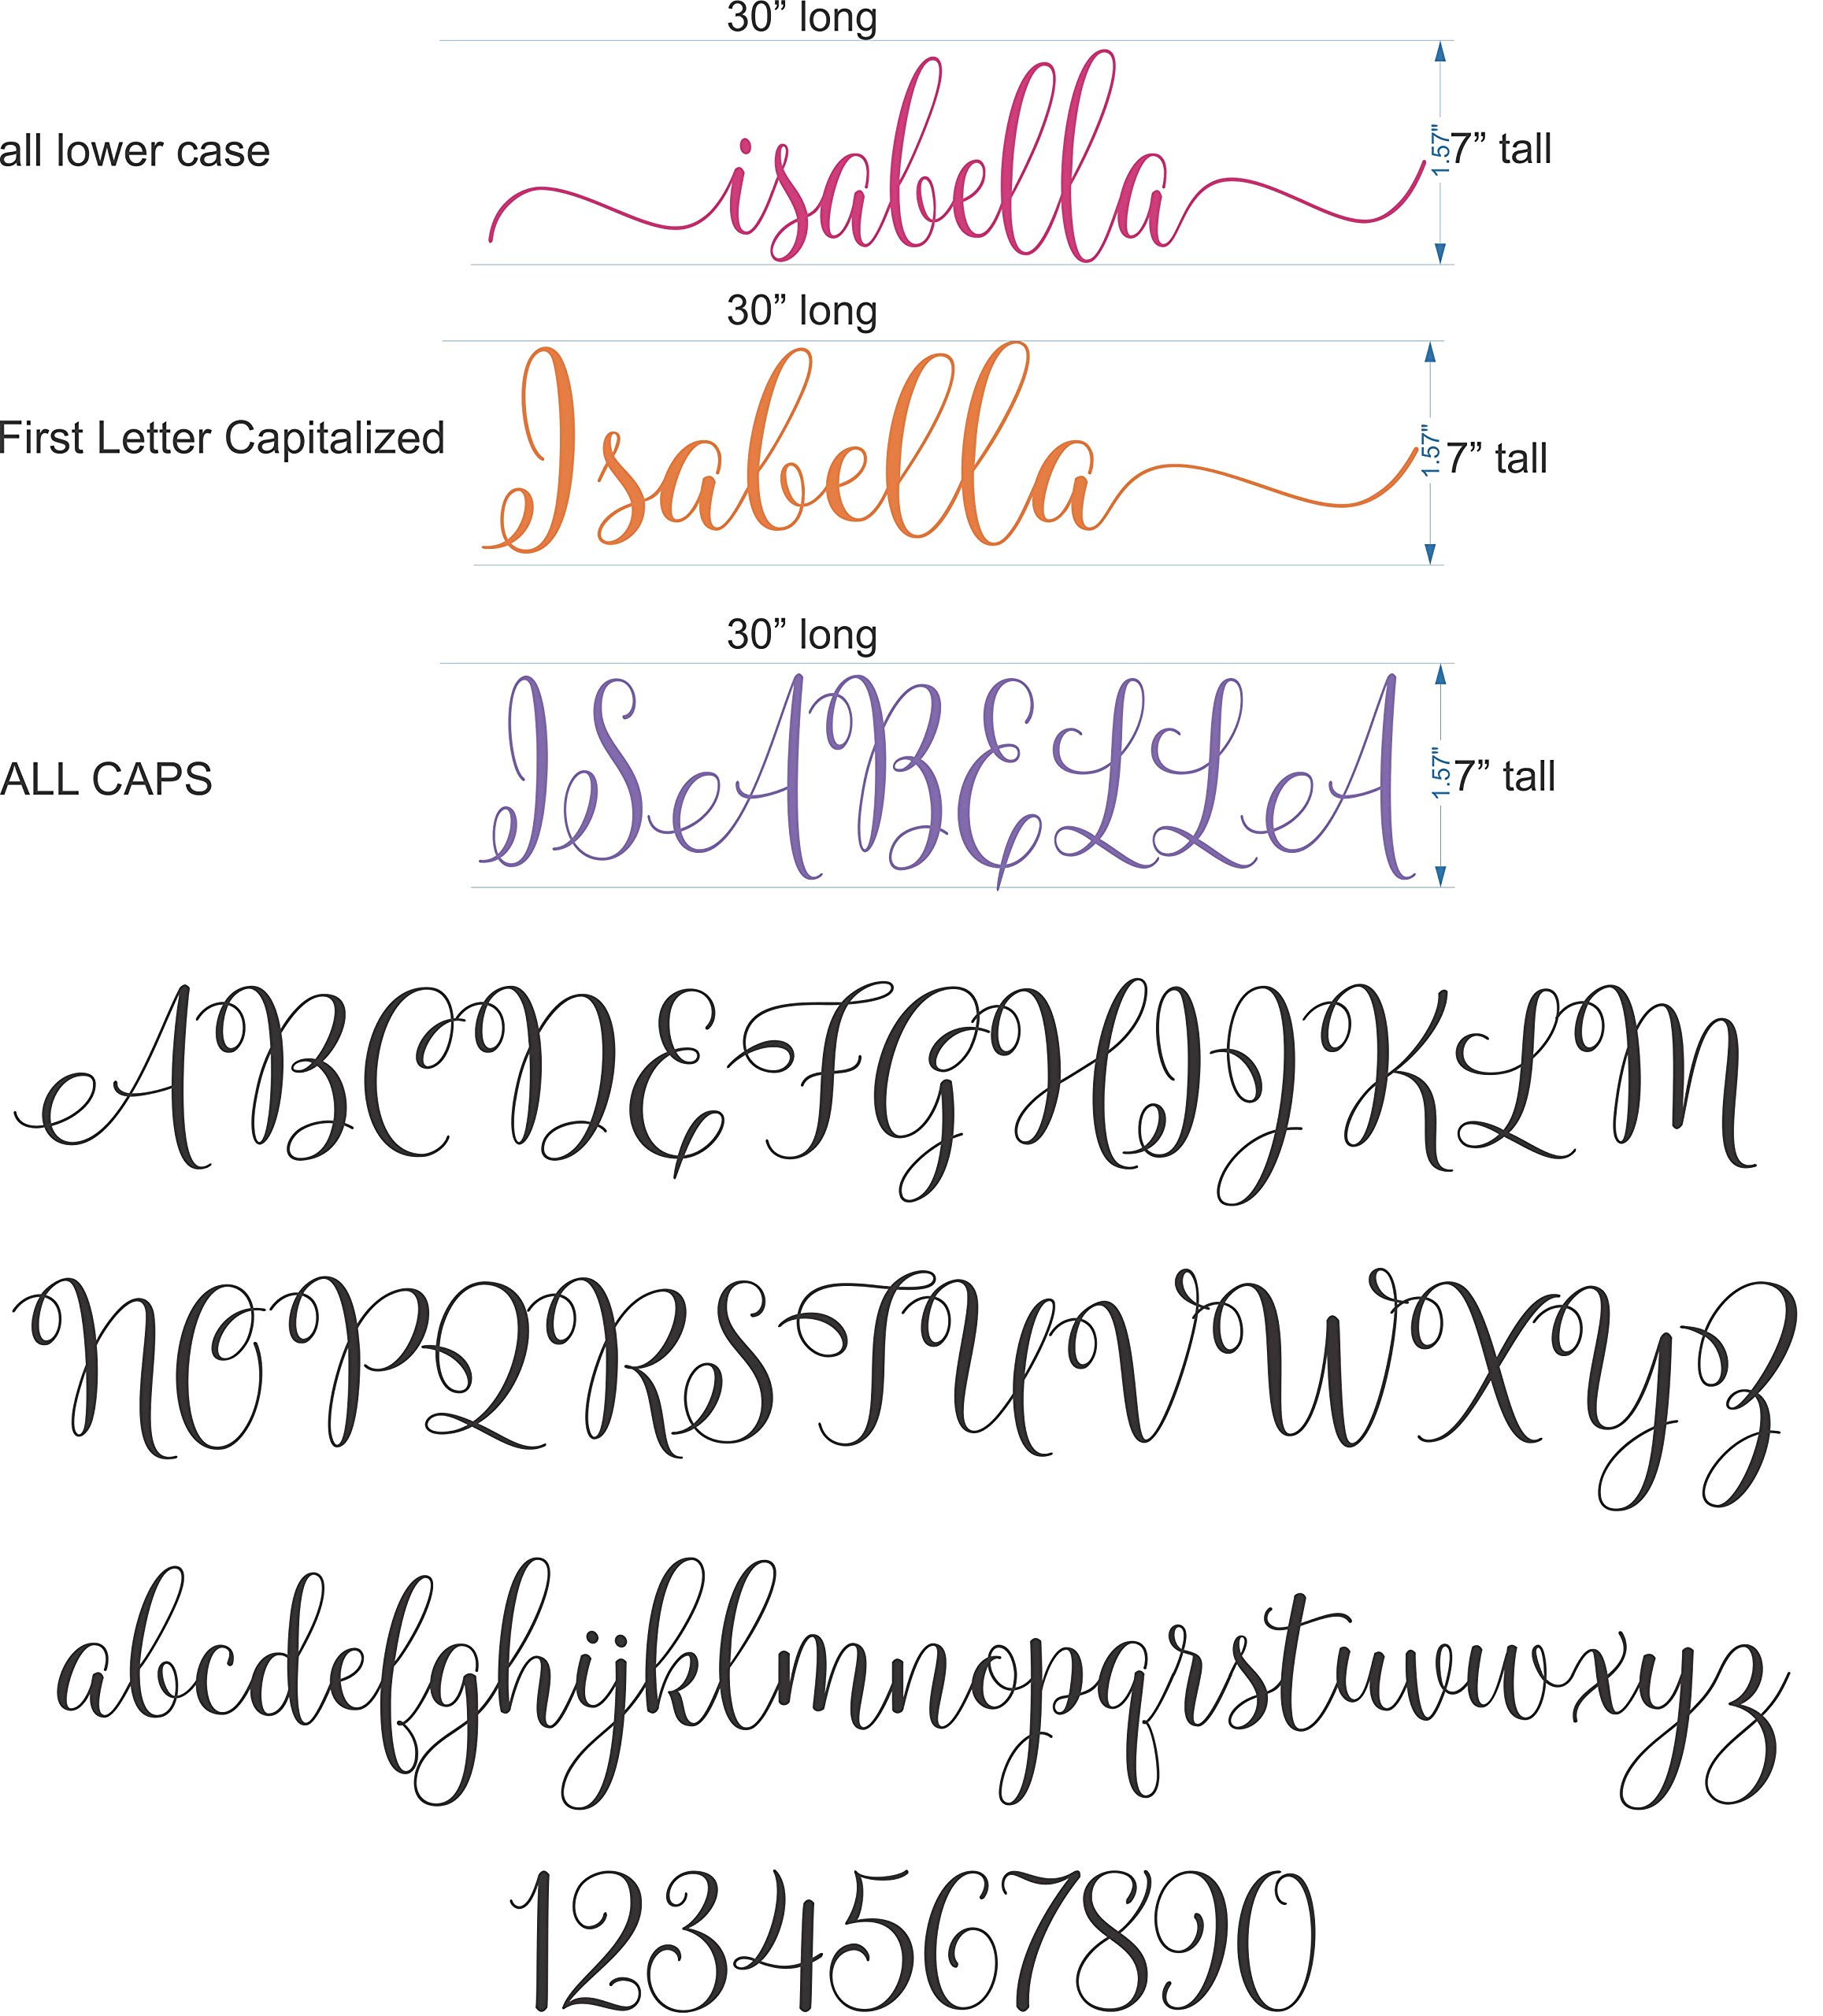 30” long
all lower case isabella 1.57" 7” tall
30” long
First Letter Capitalized Isabella 1.57" 7” tall
30” long
ALL CAPS ISABELLA 1.57" 7” tall
ABCDEFGHIJKLM
NOPQRSTUVWXYZ
abcdefghijklmnopqrstuvwxyz
1234567890